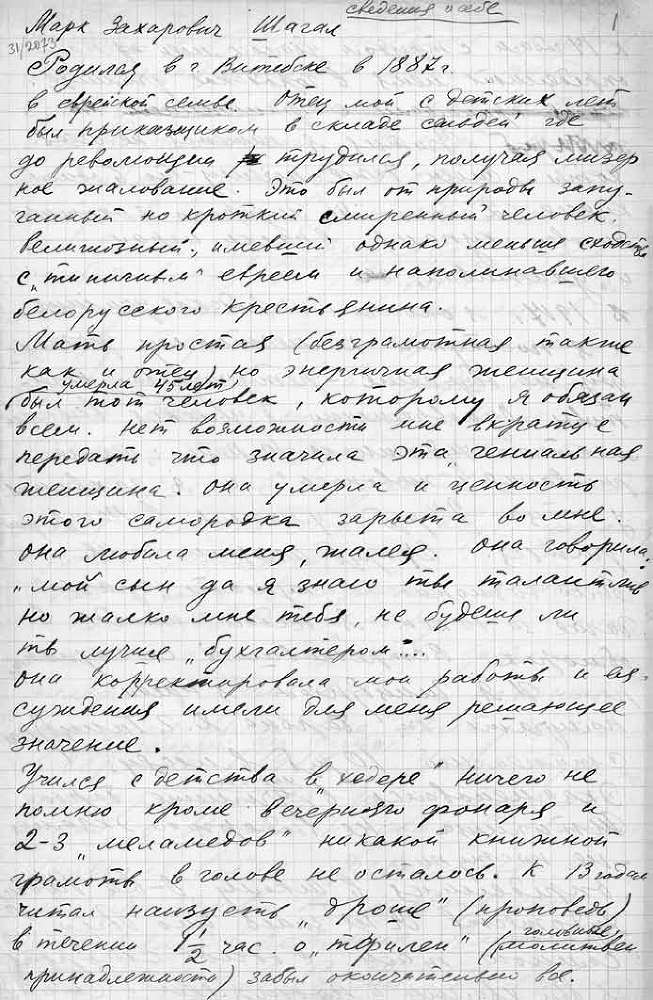 сведения о себе
1
Марк Захарович Шагал
31/2073
Родился в г. Витебске в 1887 г
в еврейской семье. Отец мой с детских лет
был приказщиком в складе сельдей где
до революции трудился, получая мизер
ное жалование. Это был от природы запу-
ганный но кроткий смиренный человек.
велигиозный, имевший однако меньше сходства
с „типичным" евреем и напоминавшего
белорусского крестьянина.
Мать простая (безграмотная также
как и отец) но энергичная женщина
умерла 45 лет
был тот человек, которому я обязан
всем. Нет возможности мне вкратце
передать что значила эта „гениальная
женщина. Она умерла и ценность
этого самородка зарыта во мне.
Она любила меня, жалея. Она говорила:
„мой сын да я знаю ты талантлив
но жалко мне тебя, не будешь ли
ты лучше „бухгалтером"...
Она корректировала мои работы и ея
суждения имели для меня решающее
значение.
Учился с детства в „хедере" ничего не
помню кроме вечернего фонаря и
2-3 „меламедов" никакой книжной
грамоты в голове не осталось. К 13 годам
читал наизусть „дроше" (проповедь)
в течении 1 1/2 час. о „тфилен" (головные,
молитвен
принадлежности) забыл окончательно все.